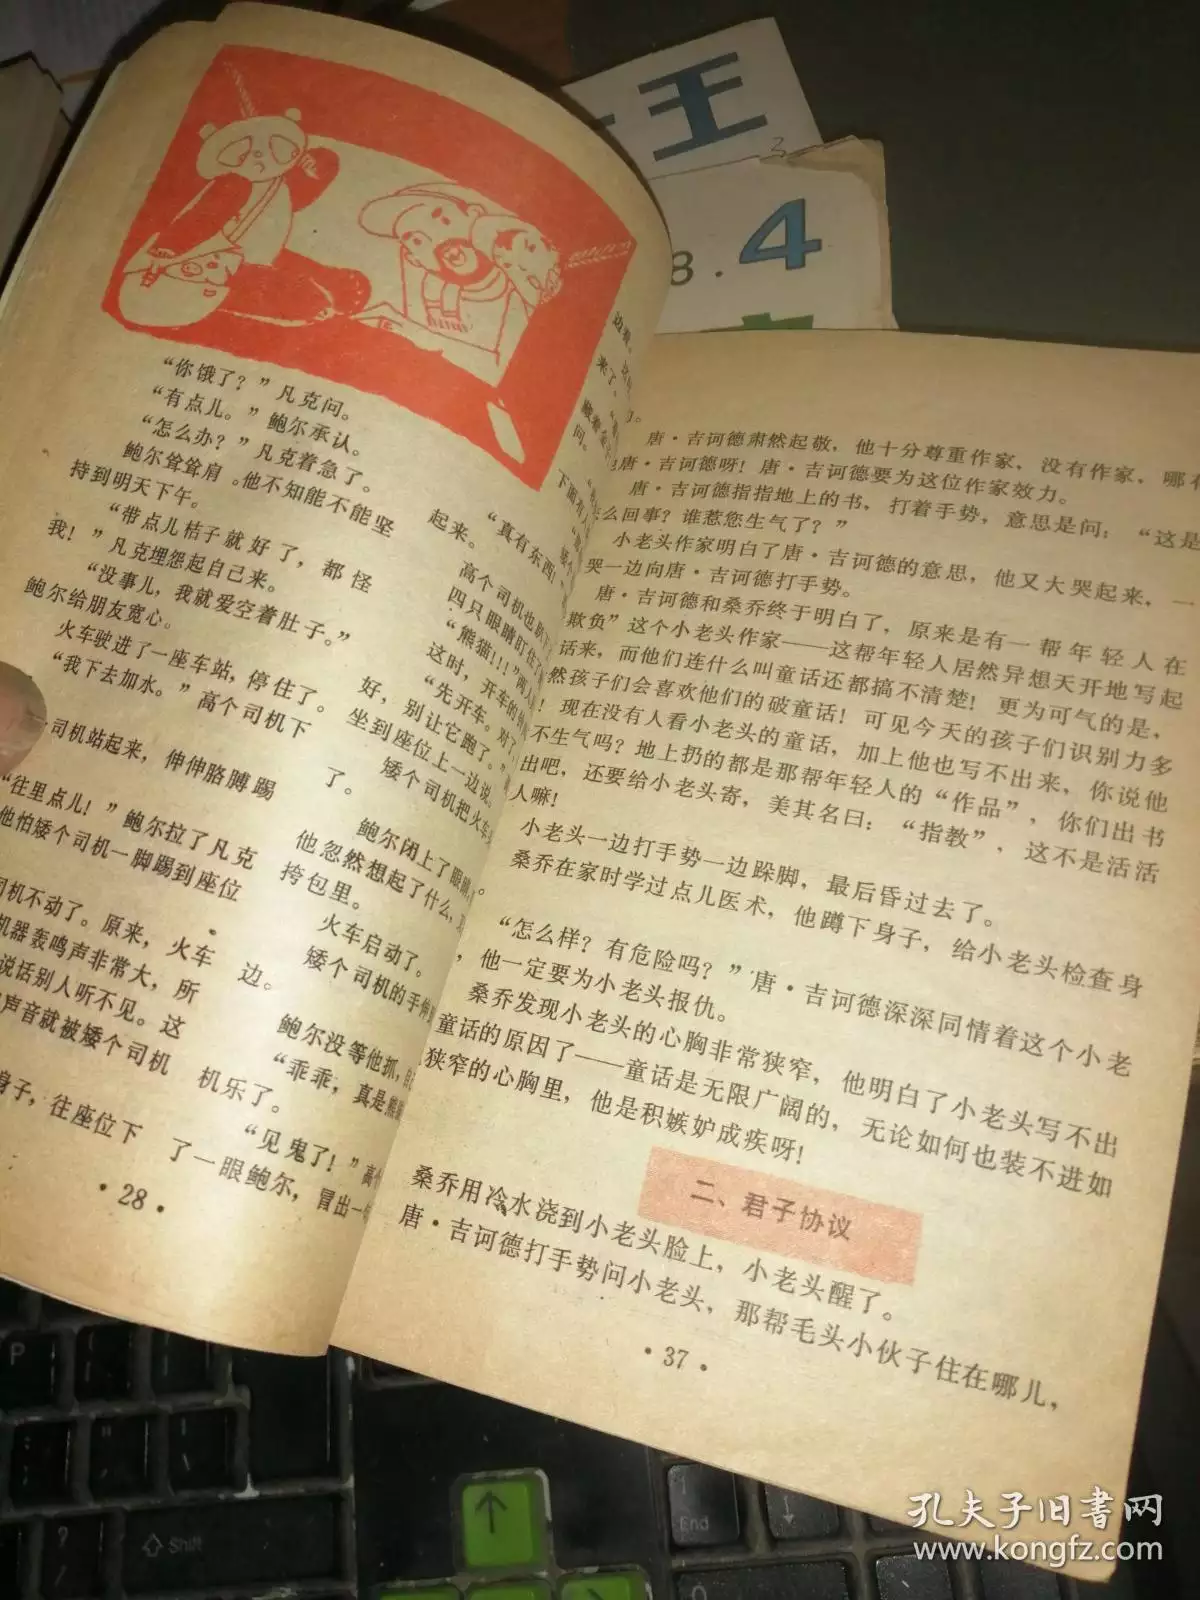 王
3
8.4
“你饿了？”凡克问。
“有点儿。”鲍尔承认。
“怎么办？”凡克着急了。
鲍尔耸耸肩。他不知能不能坚
持到明天下午。
“带点儿桔子就好了，都怪
我！”凡克埋怨起自己来。
“没事儿，我就爱空着肚子。”
鲍尔给朋友宽心。
火车驶进了一座车站，停住了。
“我下去加水。”高个司机下
司机站起来，伸伸胳膊踢
“往里点儿！”鲍尔拉了凡克
他怕矮个司机一脚踢到座位
司机不动了。原来，火车
机器轰鸣声非常大，所
说话别人听不见。这
声音就被矮个司机
身子，往座位下
·28·
起来。
“真有东西！
高个司机也趴下
四只眼睛盯住了
“熊猫!!!”两
这时，开车的
“先开车。对了
好，别让它跑了。”
坐到座位上一边说。
矮个司机把火车
了。
鲍尔闭上了眼睛。
他忽然想起了什么，
挎包里。
火车启动了。
矮个司机的手伸
边。
鲍尔没等他抓，
“乖乖，真是熊
机乐了。
“见鬼了！”高个
了一眼鲍尔，冒出一
来了。
问。
下面有人
唐·吉诃德肃然起敬，他十分尊重作家，没有作家，哪有
唐·吉诃德呀！唐·吉诃德要为这位作家效力。
唐·吉诃德指指地上的书，打着手势，意思是问：“这是
么回事？谁惹您生气了？”
小老头作家明白了唐·吉诃德的意思，他又大哭起来，一
哭一边向唐·吉诃德打手势。
唐·吉诃德和桑乔终于明白了，原来是有一帮年轻人在
欺负”这个小老头作家——这帮年轻人居然异想天开地写起
话来，而他们连什么叫童话还都搞不清楚！更为可气的是，
然孩子们会喜欢他们的破童话！可见今天的孩子们识别力多
！现在没有人看小老头的童话，加上他也写不出来，你说他
不生气吗？地上扔的都是那帮年轻人的“作品”，你们出书
出吧，还要给小老头寄，美其名曰：“指教”，这不是活活
人嘛！
小老头一边打手势一边跺脚，最后昏过去了。
桑乔在家时学过点儿医术，他蹲下身子，给小老头检查身
“怎么样？有危险吗？”唐·吉诃德深深同情着这个小老
，他一定要为小老头报仇。
桑乔发现小老头的心胸非常狭窄，他明白了小老头写不出
童话的原因了——童话是无限广阔的，无论如何也装不进如
狭窄的心胸里，他是积嫉妒成疾呀！
二、君子协议
桑乔用冷水浇到小老头脸上，小老头醒了。
唐·吉诃德打手势问小老头，那帮毛头小伙子住在哪儿，
·37·
P
?
Shift
End
孔夫子旧书网
www.kongfz.com